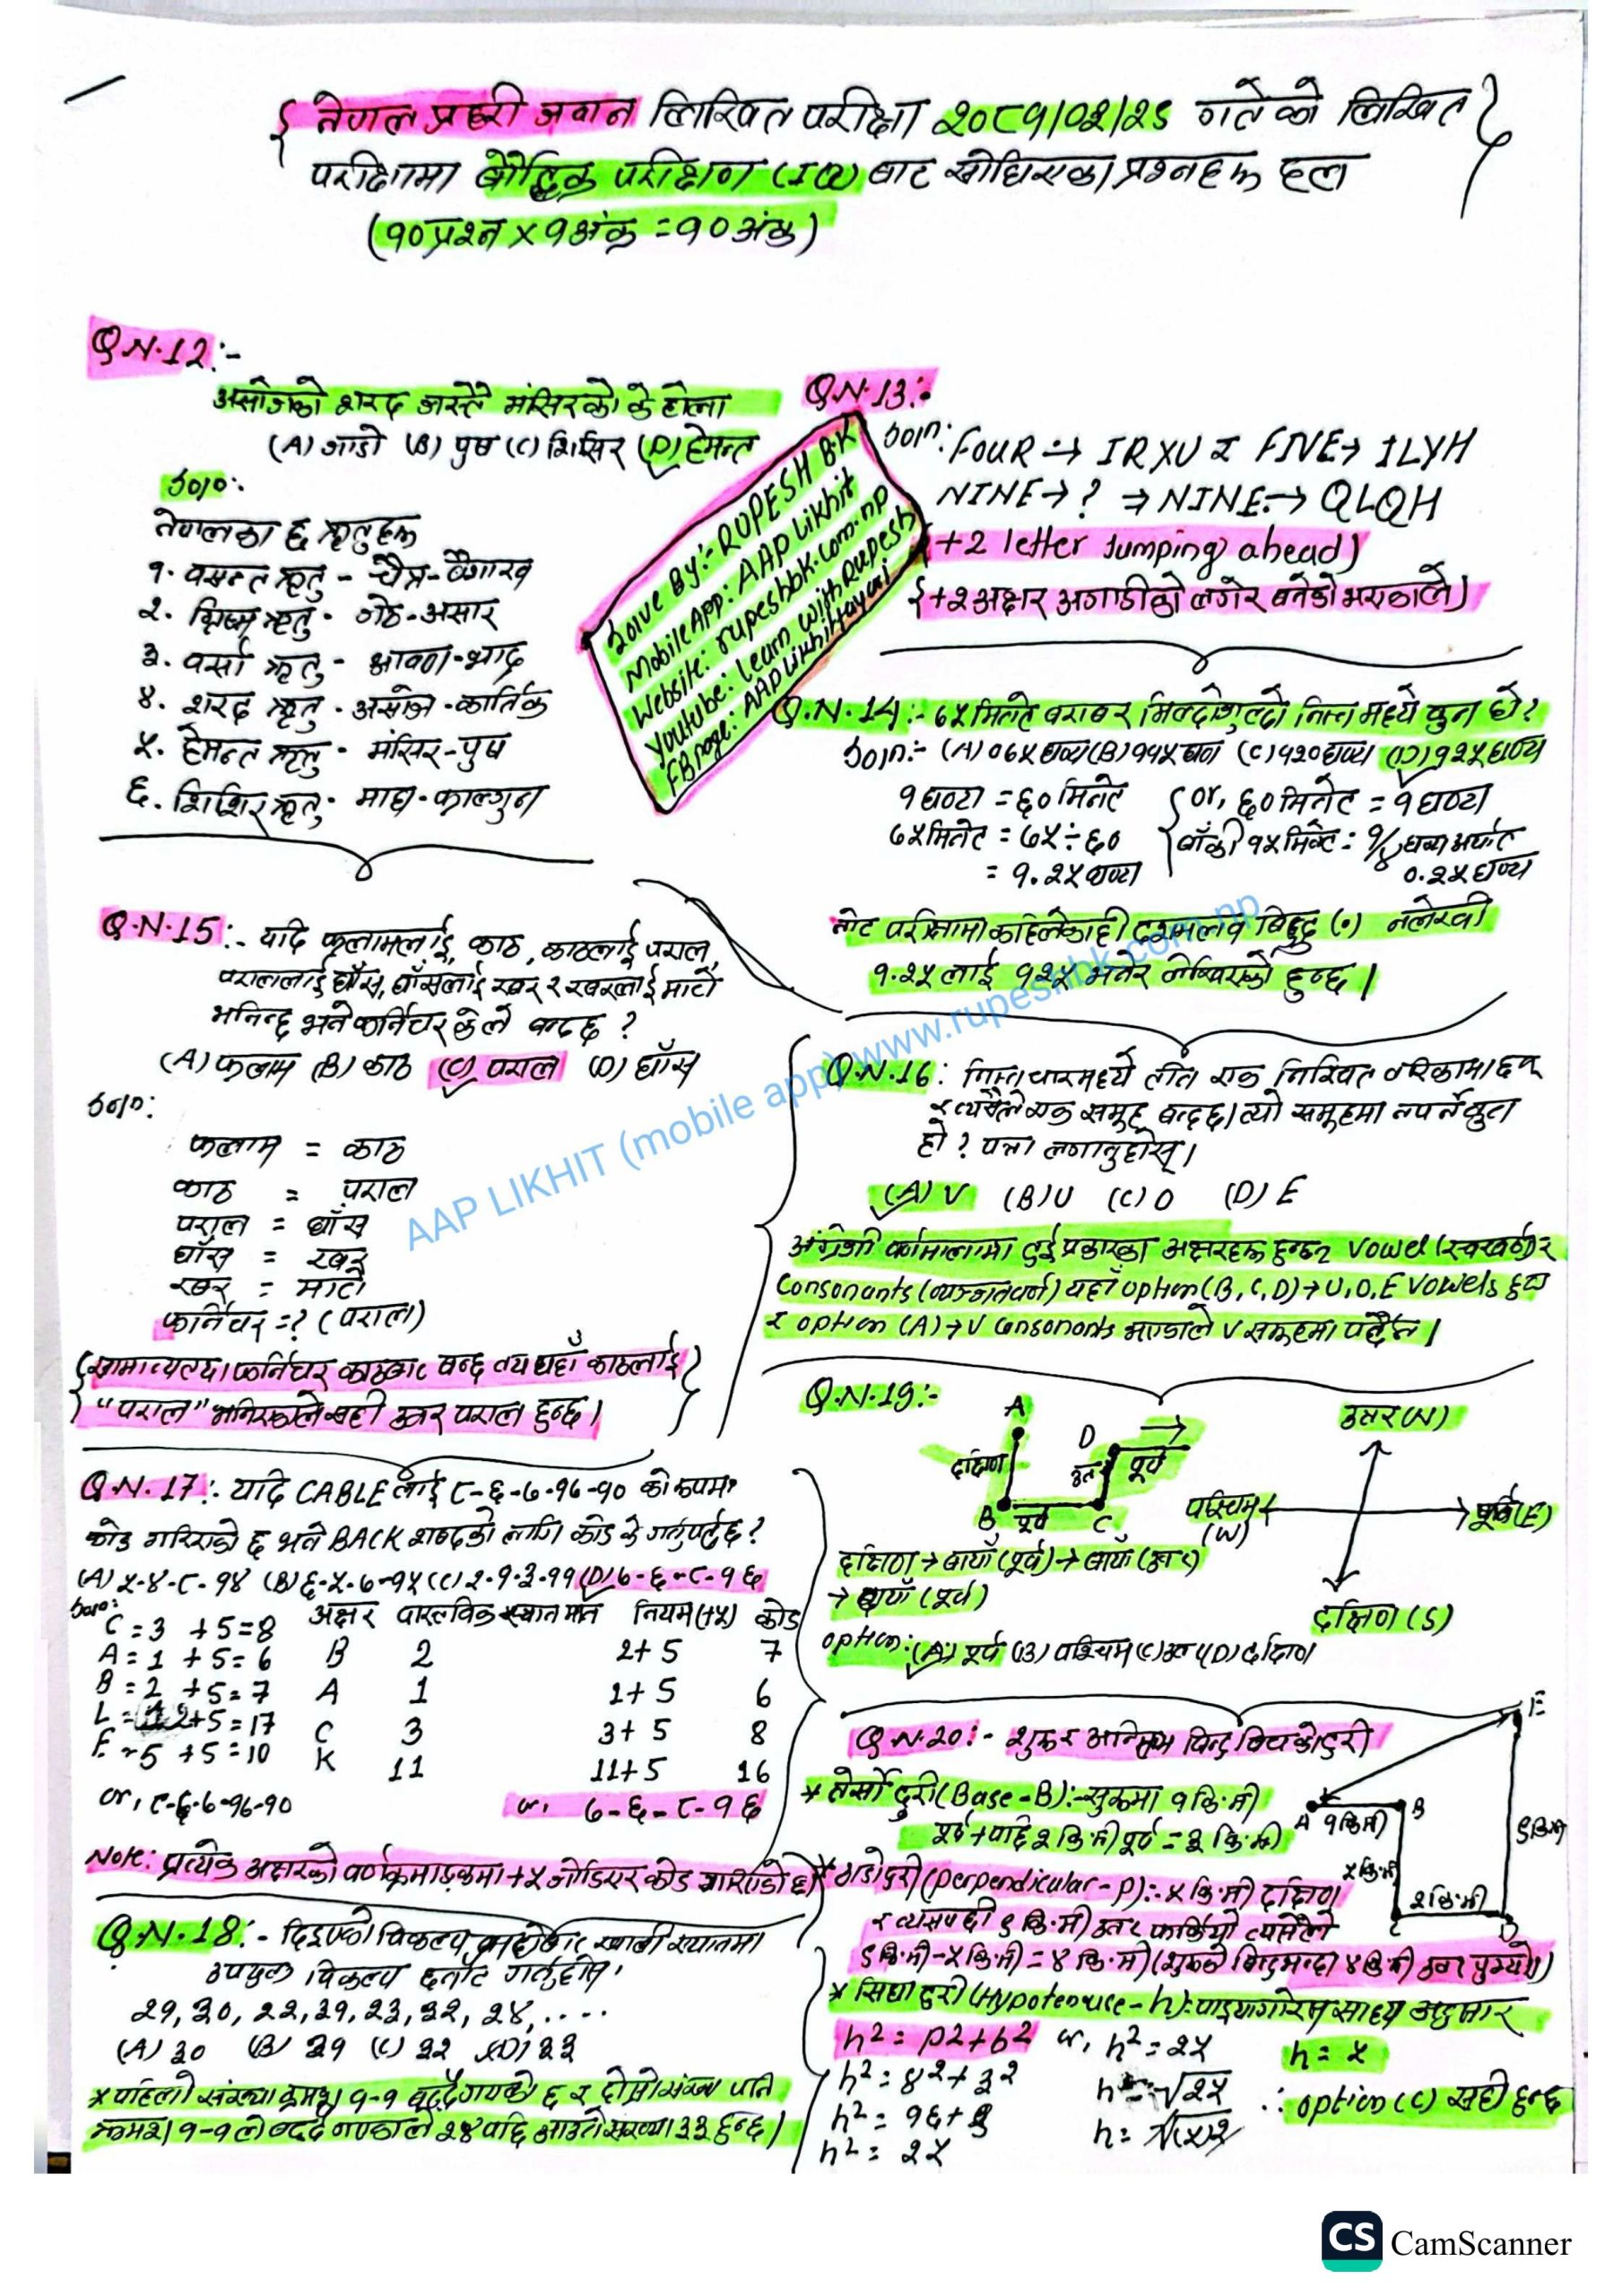 { नेपाल प्रहरी जवान लिखित परीक्षा २०८१/०२/२६ गतेको लिखित }
परीक्षामा बौद्धिक परिक्षण (IQ) बाट सोधिएका प्रश्नहरू हल
(१० प्रश्न × १ अंक = १० अंक)
Q.N.12:-
असोजको शरद जस्तै मंसिरको के होला
(A) जाडो (B) पुष (C) शिसिर (D) हेमन्त
Soln:
नेपालका ६ ऋतुहरू
१. वसन्त ऋतु - चैत्र-वैशाख
२. ग्रिष्म ऋतु - जेठ-असार
३. वर्सा ऋतु - श्रावण-भाद्र
४. शरद ऋतु - असोज-कार्तिक
५. हेमन्त ऋतु - मंसिर-पुष
६. शिशिर ऋतु - माघ-फाल्गुन
Solve By:- RUPESH B.K
Mobile App: AAP Likhit
Website: rupeshbk.com.np
Youtube: Learn with Rupesh
FB page: AAP Likhit Tayari
Q.N.13:-
Soln: FOUR → IRXU र FIVE → ILYH
NINE → ? ⇒ NINE → QLQH
{+2 letter Jumping ahead)
{+2 अक्षर अगाडीको लगेर बनेको भएकाले)
Q.N.14:- ७५ मिनेट बराबर मिल्दोजुल्दो निम्न मध्ये कुन हो?
Soln:- (A) ०७५ घण्टा (B) ११५ घण्टा (C) १२० घण्टा (D) १२५ घण्टा
१ घण्टा = ६० मिनेट
७५ मिनेट = ७५ ÷ ६०
= १.२५ घण्टा
{ or, ६० मिनेट = १ घण्टा
बाँकी १५ मिनेट = १/४ घण्टा अर्फात
०.२५ घण्टा
नोट परिक्षामा कहिलेकाही दशमलव बिन्दु (.) नलेखी
१.२५ लाई १२५ भनेर लेखिएको हुन्छ।
Q.N.15:- यदि फलामलाई काठ, काठलाई पराल,
पराललाई घाँस, घाँसलाई रबर र रबरलाई माटो
भनिन्छ भने फर्निचर केले बन्दछ?
(A) फलाम (B) काठ (C) पराल (D) घाँस
Soln:
फलाम = काठ
काठ = पराल
पराल = घाँस
घाँस = रबर
रबर = माटो
फर्निचर =? (पराल)
{सामान्यतया फर्निचर काठबाट बन्छ तर यहाँ काठलाई
"पराल" भनिएकाले सही उत्तर पराल हुन्छ।}
Q.N.16: निम्न चारमध्ये तीन एक निश्चित तरिकामा छन्
र त्यसैले एक समूह बन्दछ। त्यो समूहमा नपर्ने कुन
हो? पत्ता लगानुहोस्।
(A) V (B) U (C) O (D) E
अंग्रेजी वर्णमालामा दुई प्रकारका अक्षरहरू हुन्छन् Vowel (स्वरवर्ण) र
Consonants (व्यञ्जनवर्ण) यहाँ option (B, C, D) → U, O, E Vowels हुन्
र option (A) → V Consonants भएकाले V समूहमा पर्दैन।
Q.N.17:- यदि CABLE लाई ८-६-७-१७-१० को रूपमा
कोड गरिएको छ भने BACK शब्दको लागि कोड के गर्नुपर्दछ?
(A) ५-४-८-१४ (B) ६-५-७-१५ (C) २-१-३-११ (D) ७-६-८-१६
Soln:
C = 3 + 5 = 8
A = 1 + 5 = 6
B = 2 + 5 = 7
L = 12 + 5 = 17
E = 5 + 5 = 10
or, ८-६-७-१७-१०
अक्षर वास्तविक स्थान मान नियम (+५) कोड
B 2 2+5 7
A 1 1+5 6
C 3 3+5 8
K 11 11+5 16
or, ७-६-८-१६
Note: प्रत्येक अक्षरको वर्णक्रमाङ्कमा +५ जोडिएर कोड गरिएको छ।
Q.N.18:- दिइएको विकल्प मध्येबाट खाली स्थानमा
उपयुक्त विकल्प छनौट गर्नुहोस्।
२१, ३०, २२, ३१, २३, ३२, २४, ....
(A) ३० (B) ३१ (C) ३२ (D) ३३
* पहिलो संख्या क्रमशः १-१ बढ्दै गएको छ र दोस्रो संख्या पनि
क्रमशः १-१ ले बढ्दै गएकाले २४ पछि आउने संख्या ३३ हुन्छ।
Q.N.19:-
A
दक्षिण
B पूर्व C
D
उत्तर पूर्व
उत्तर (N)
पश्चिम (W)
पूर्व (E)
दक्षिण (S)
दक्षिण → बायाँ (पूर्व) → बायाँ (उत्तर)
→ दायाँ (पूर्व)
option: (A) पूर्व (B) पश्चिम (C) उत्तर (D) दक्षिण
Q.N.20:- शुरू र अन्तिम बिन्दु बिचको दुरी
* तेर्सो दुरी (Base-B):- सुरुमा १ कि.मी
पूर्व + पछि २ कि.मी पूर्व = ३ कि.मी
* ठाडो दुरी (Perpendicular-P):- ५ कि.मी दक्षिण
र त्यसपछी ९ कि.मी उत्तर फर्कियो त्यसैले
९ कि.मी - ५ कि.मी = ४ कि.मी (शुरूको बिन्दु भन्दा ४ कि.मी उत्तर पुग्यो)
* सिधा दुरी (Hypotenuse-h): पाइथागोरस साध्य अनुसार
h² = p² + b²
h² = ४² + ३²
h² = १६ + ९
h² = २५
or, h² = २५
h = √२५
h = √(५)²
h = ५
∴ option (C) सही हुन्छ
E
A १ कि.मी B
५ कि.मी
C २ कि.मी D
९ कि.मी
AAP LIKHIT (mobile app) www.rupeshbk.com.np
CS CamScanner